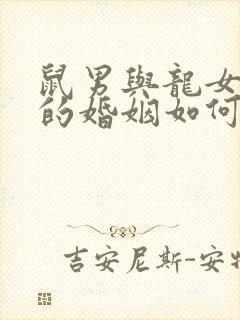 鼠男與龍女
的婚姻如何
吉安尼斯-安特